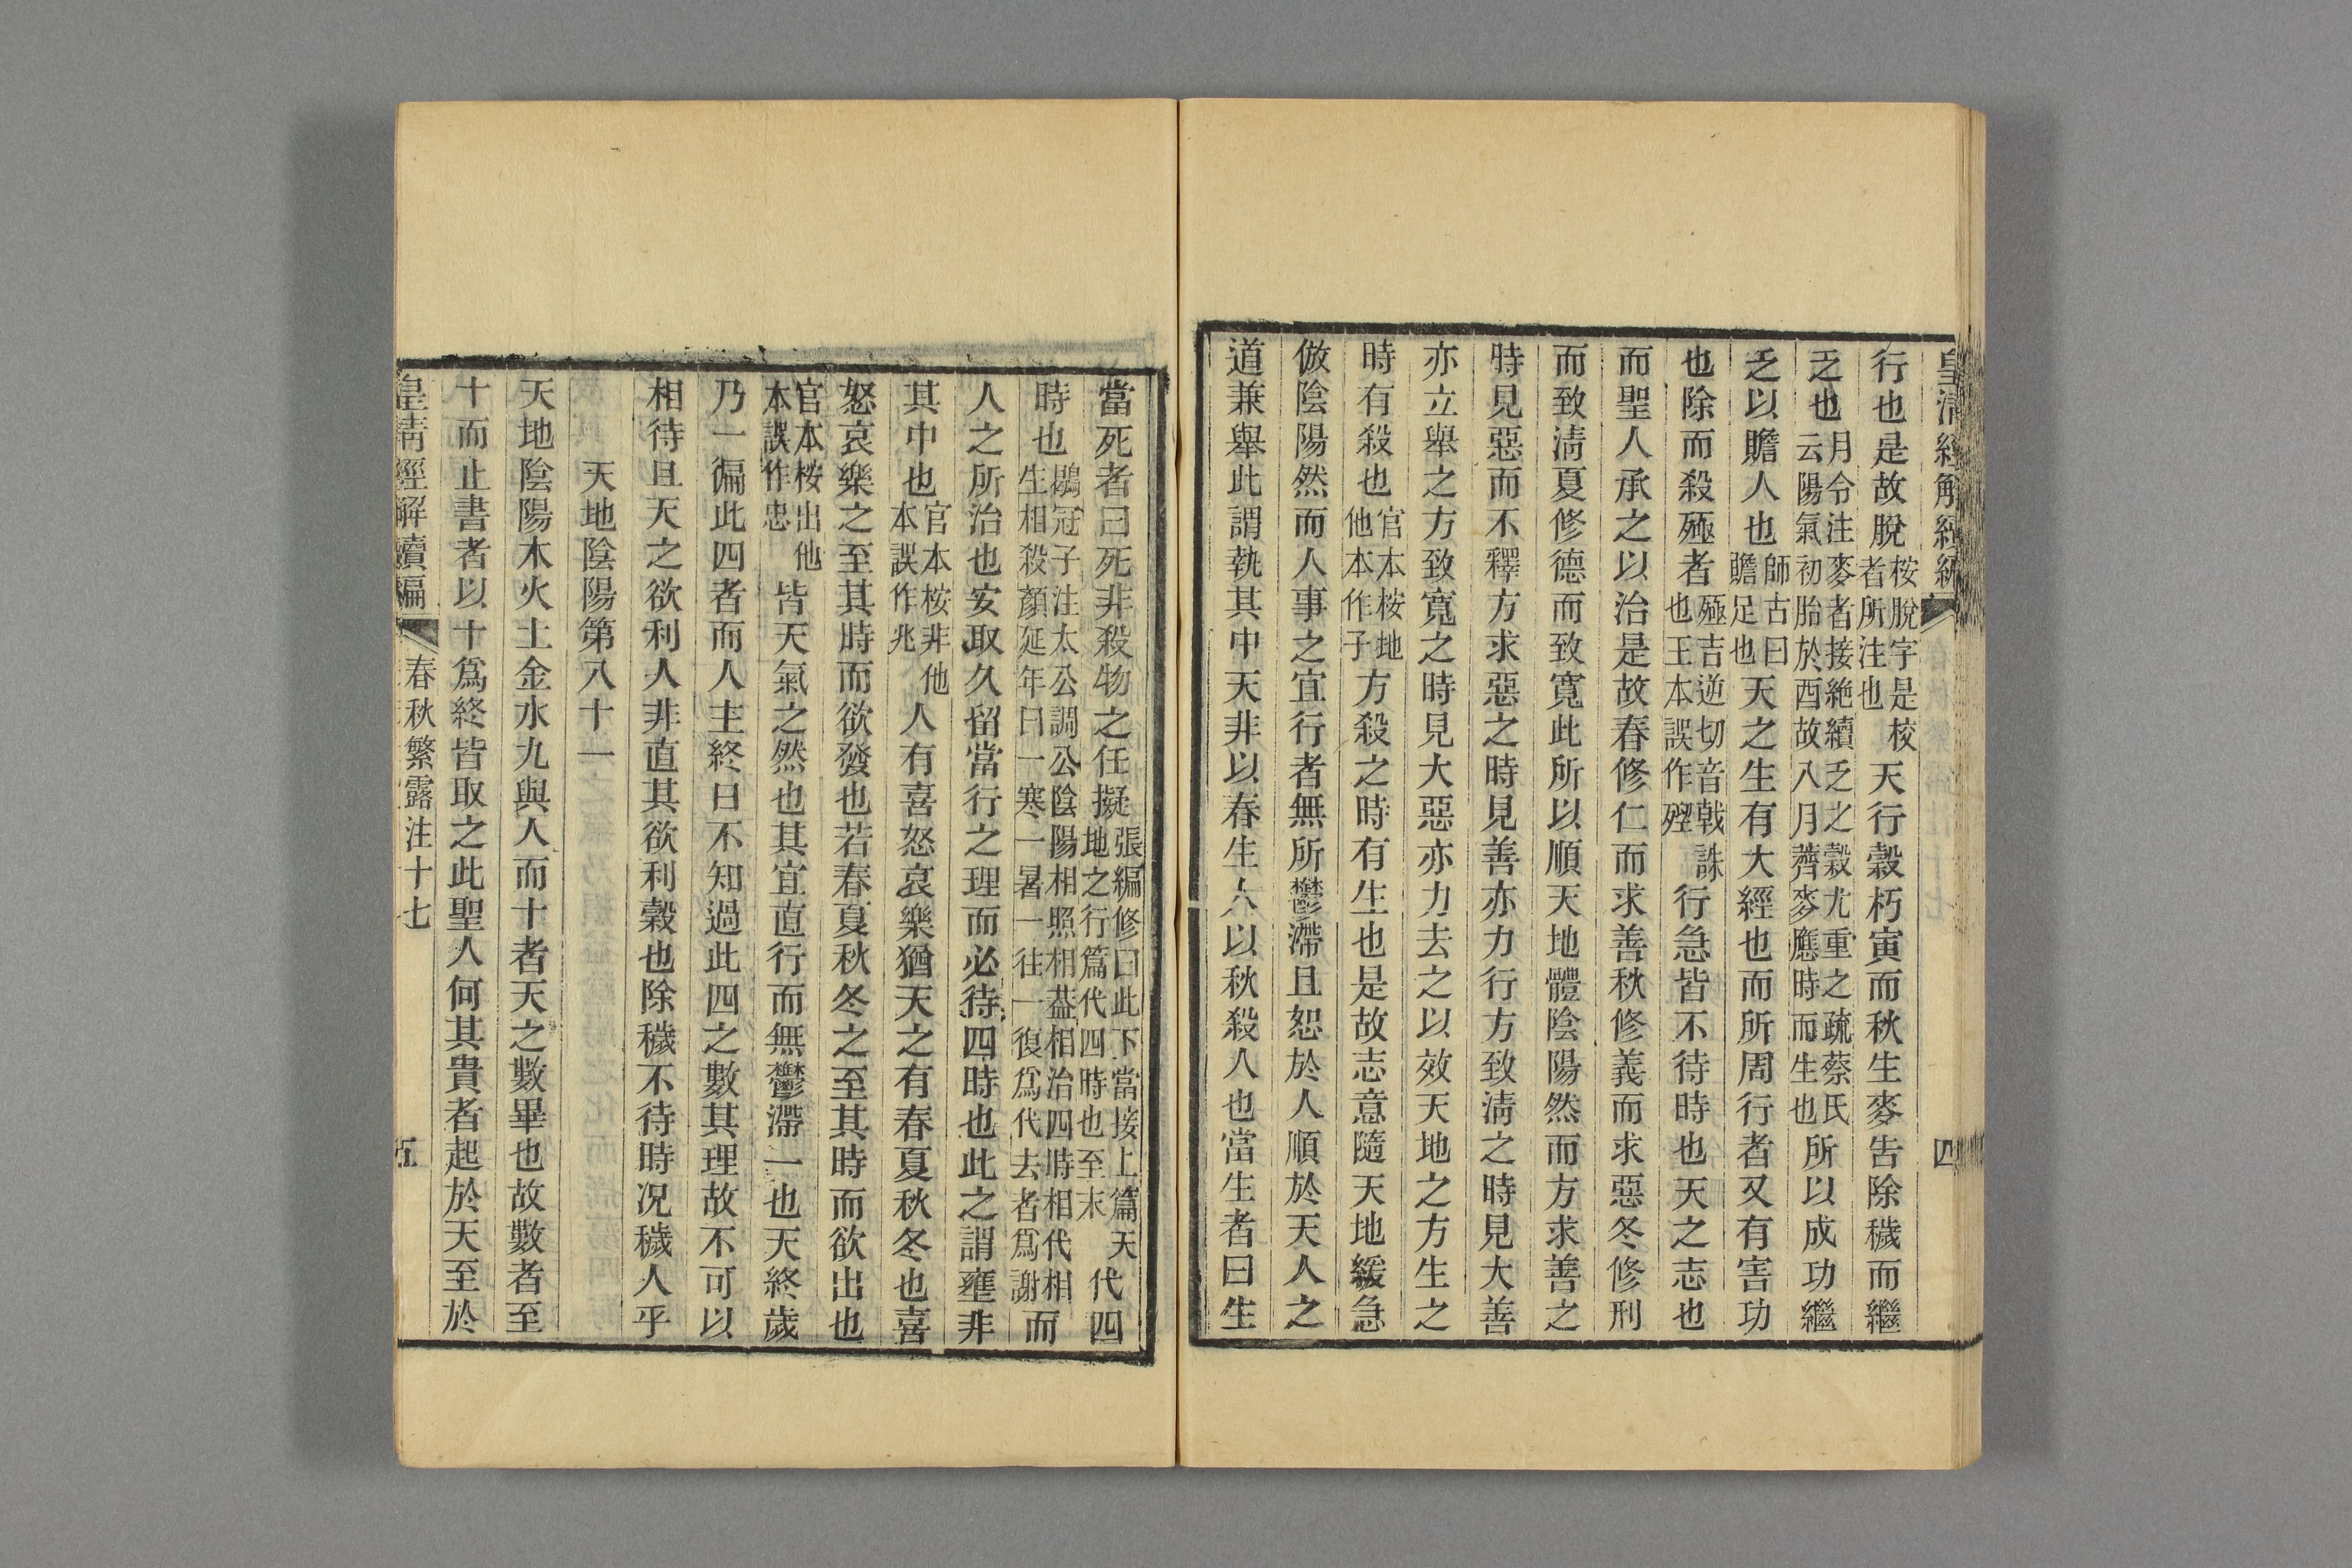 皇淸經解續編 四
行也是故脫桉脫字是校者所注也天行穀朽寅而秋生麥告除穢而繼
乏也月令注麥者接絶續乏之穀尤重之疏蔡氏云陽氣初胎於酉故八月薺麥應時而生也所以成功繼
乏以贍人也師古曰贍足也天之生有大經也而所周行者又有害功
也除而殺殛者殛吉逆切音戟誅也王本誤作殌行急皆不待時也天之志也
而聖人承之以治是故春修仁而求善秋修義而求惡冬修刑
而致淸夏修德而致寬此所以順天地體陰陽然而方求善之
時見惡而不釋方求惡之時見善亦力行方致淸之時見大善
亦立舉之方致寬之時見大惡亦力去之以效天地之方生之
時有殺也官本桉地他本作子方殺之時有生也是故志意隨天地緩急
倣陰陽然而人事之宜行者無所鬱滯且恕於人順於天人之
道兼舉此謂執其中天非以春生人以秋殺人也當生者曰生
當死者曰死非殺物之任擬張編修曰此下當接上篇天地之行篇代四時也至末代四
時也鶡冠子注太公調公陰陽相照相葢相治四時相代相生相殺顏延年曰一寒一暑一往一復爲代去者爲謝而
人之所治也安取久留當行之理而必待四時也此之謂壅非
其中也官本桉非他本誤作兆人有喜怒哀樂猶天之有春夏秋冬也喜
怒哀樂之至其時而欲發也若春夏秋冬之至其時而欲出也
官本桉出他本誤作忠皆天氣之然也其宜直行而無鬱滯一也天終歲
乃一徧此四者而人主終日不知過此四之數其理故不可以
相待且天之欲利人非直其欲利穀也除穢不待時况穢人乎
天地陰陽第八十一
天地陰陽木火土金水九與人而十者天之數畢也故數者至
十而止書者以十爲終皆取之此聖人何其貴者起於天至於
皇淸經解續編 春秋繁露注十七 五